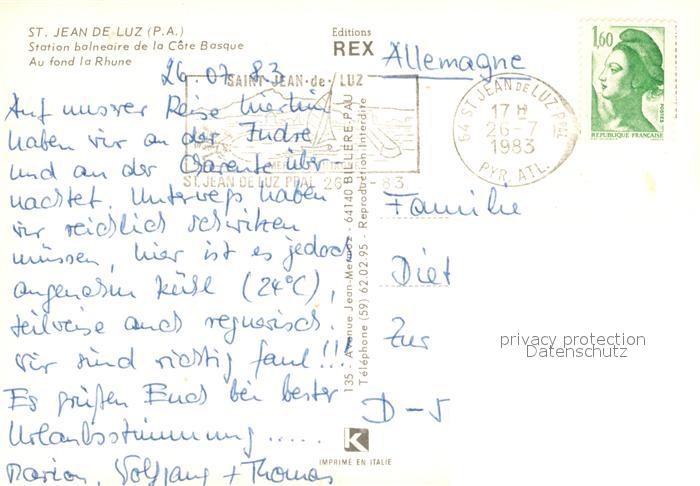 ST. JEAN DE LUZ (P.A.)
Station balnéaire de la Côte Basque
Au fond la Rhune
Editions
REX
Allemagne
26.07.83
SAINT-JEAN-de-LUZ
ST. JEAN DE LUZ PPAL 26 -83
64 ST JEAN DE LUZ PPAL
17 H
26-7
1983
PYR. ATL.
1,60
POSTES
REPUBLIQUE FRANÇAISE
Auf unserer Reise hierhin
haben wir an der Indre
und an der Charente über-
nachtet. Unterwegs haben
wir reichlich schwitzen
müssen, hier ist es jedoch
angenehm kühl (24°C),
teilweise auch regnerisch.
Wir sind richtig faul!!!
Es grüßen Euch bei bester
Urlaubsstimmung......
Marion, Wolfgang + Thomas
135, Avenue Jean-Mermoz - 64140 BILLERE-PAU
Téléphone (59) 62.02.95 - Reproduction Interdite
Familie
Diet
Zur
D-5
privacy protection
Datenschutz
K
IMPRIMÉ EN ITALIE